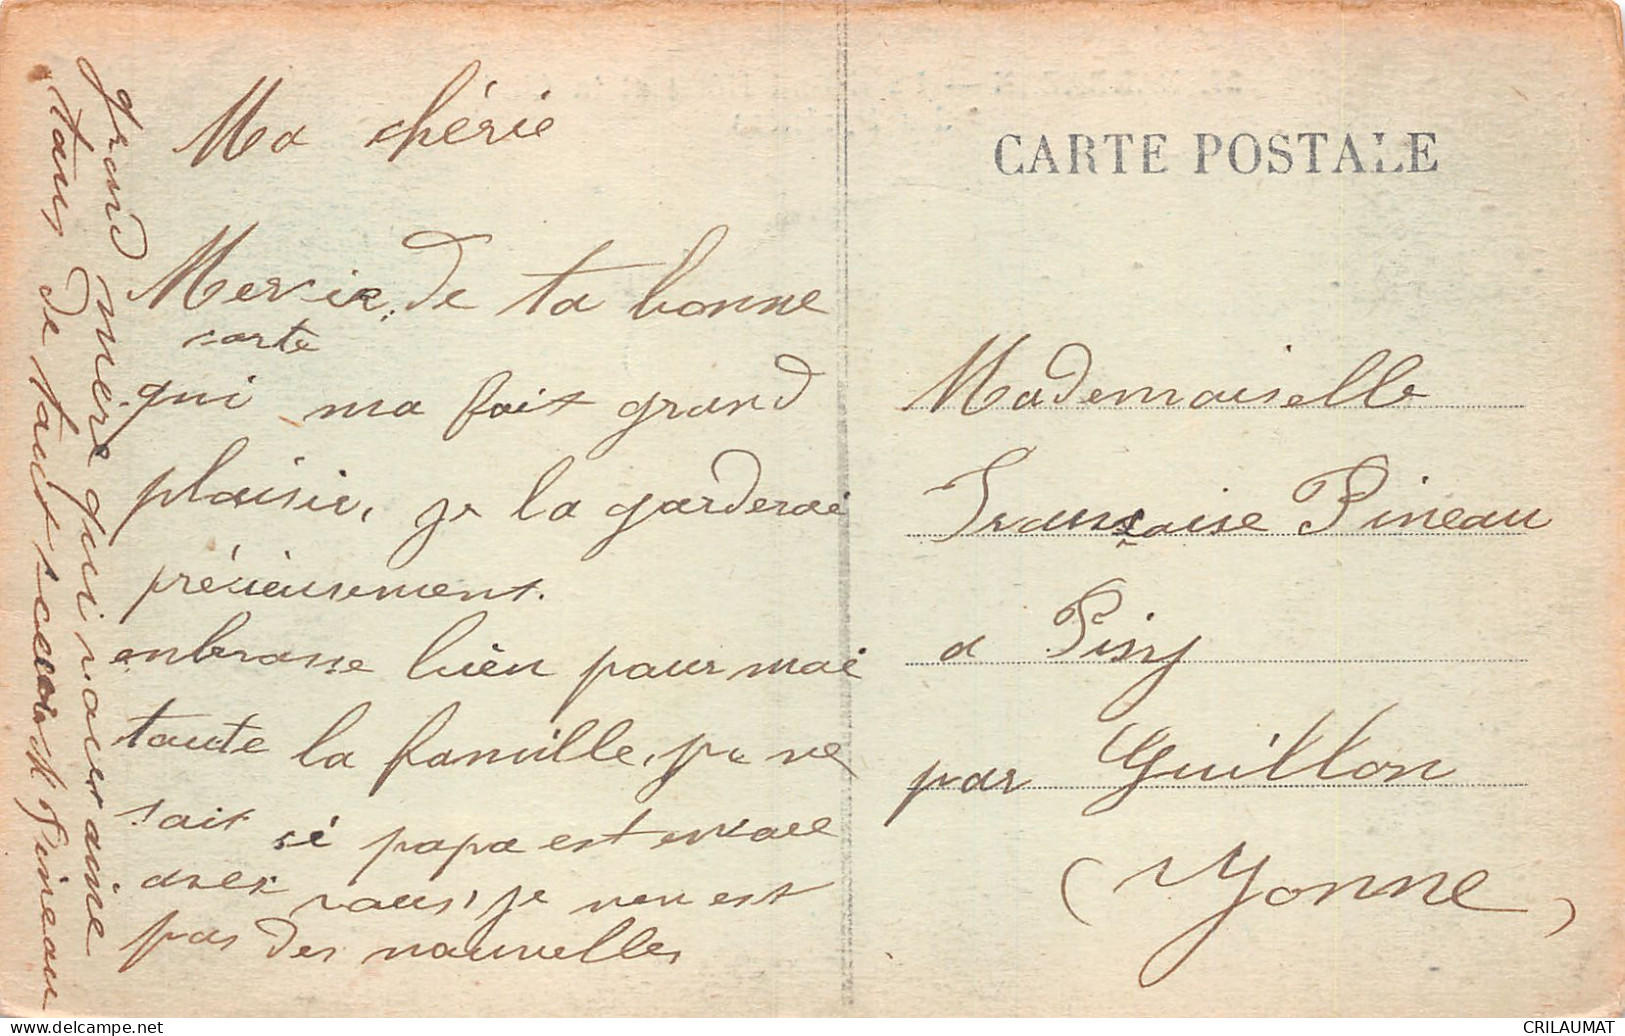 Ma chérie
Mercie de ta bonne
carte
qui ma fait grand
plaisir, je la garderai
précieusement.
enbrasse bien pour moi
toute la famille, je ne
sait si papa est encore
avec vous, je nen est
pas des nouvelles
grand mere qui vous aime
tous de tout coeur
M Pineau
CARTE POSTALE
Mademoiselle
Francaise Pineau
a Pisy
par Guillon
(Yonne)
CRILAUMAT